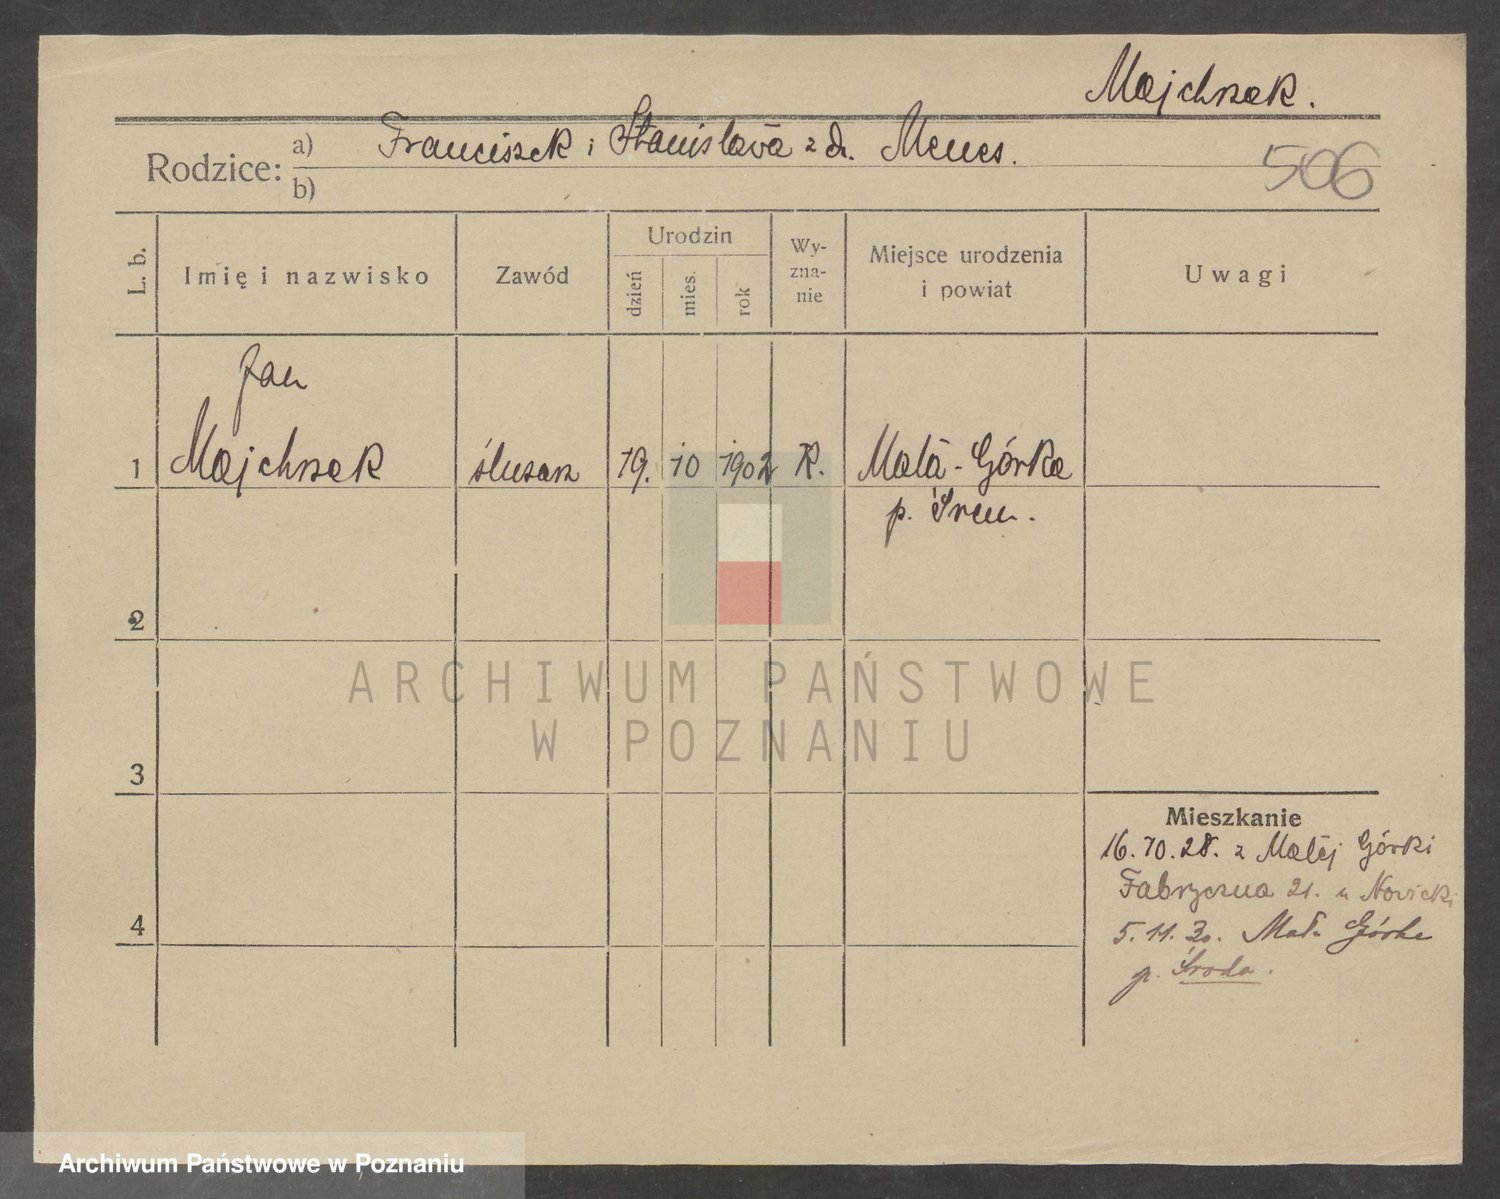 Majchrzak.
Rodzice: a) Franciszek i Stanisława z d. Menes.
b)
506
L. b.
Imię i nazwisko
Zawód
Urodzin
dzień
mies.
rok
Wy-
zna-
nie
Miejsce urodzenia
i powiat
Uwagi
Jan
1 Majchrzak ślusarz 19. 10 1902 R. Mała-Górka
p. Śrem.
2
3
4
Mieszkanie
16.10.28. z Małej Górki
Fabryczna 21. u Nowicki
5.11.30. Mała Górka
p. Środa.
ARCHIWUM PAŃSTWOWE
W POZNANIU
Archiwum Państwowe w Poznaniu